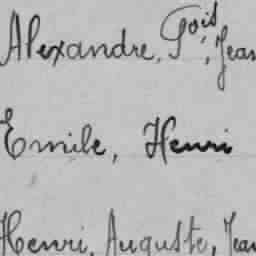 Alexandre, Pois, Jean
Emile, Henri
Henri, Auguste, Jean